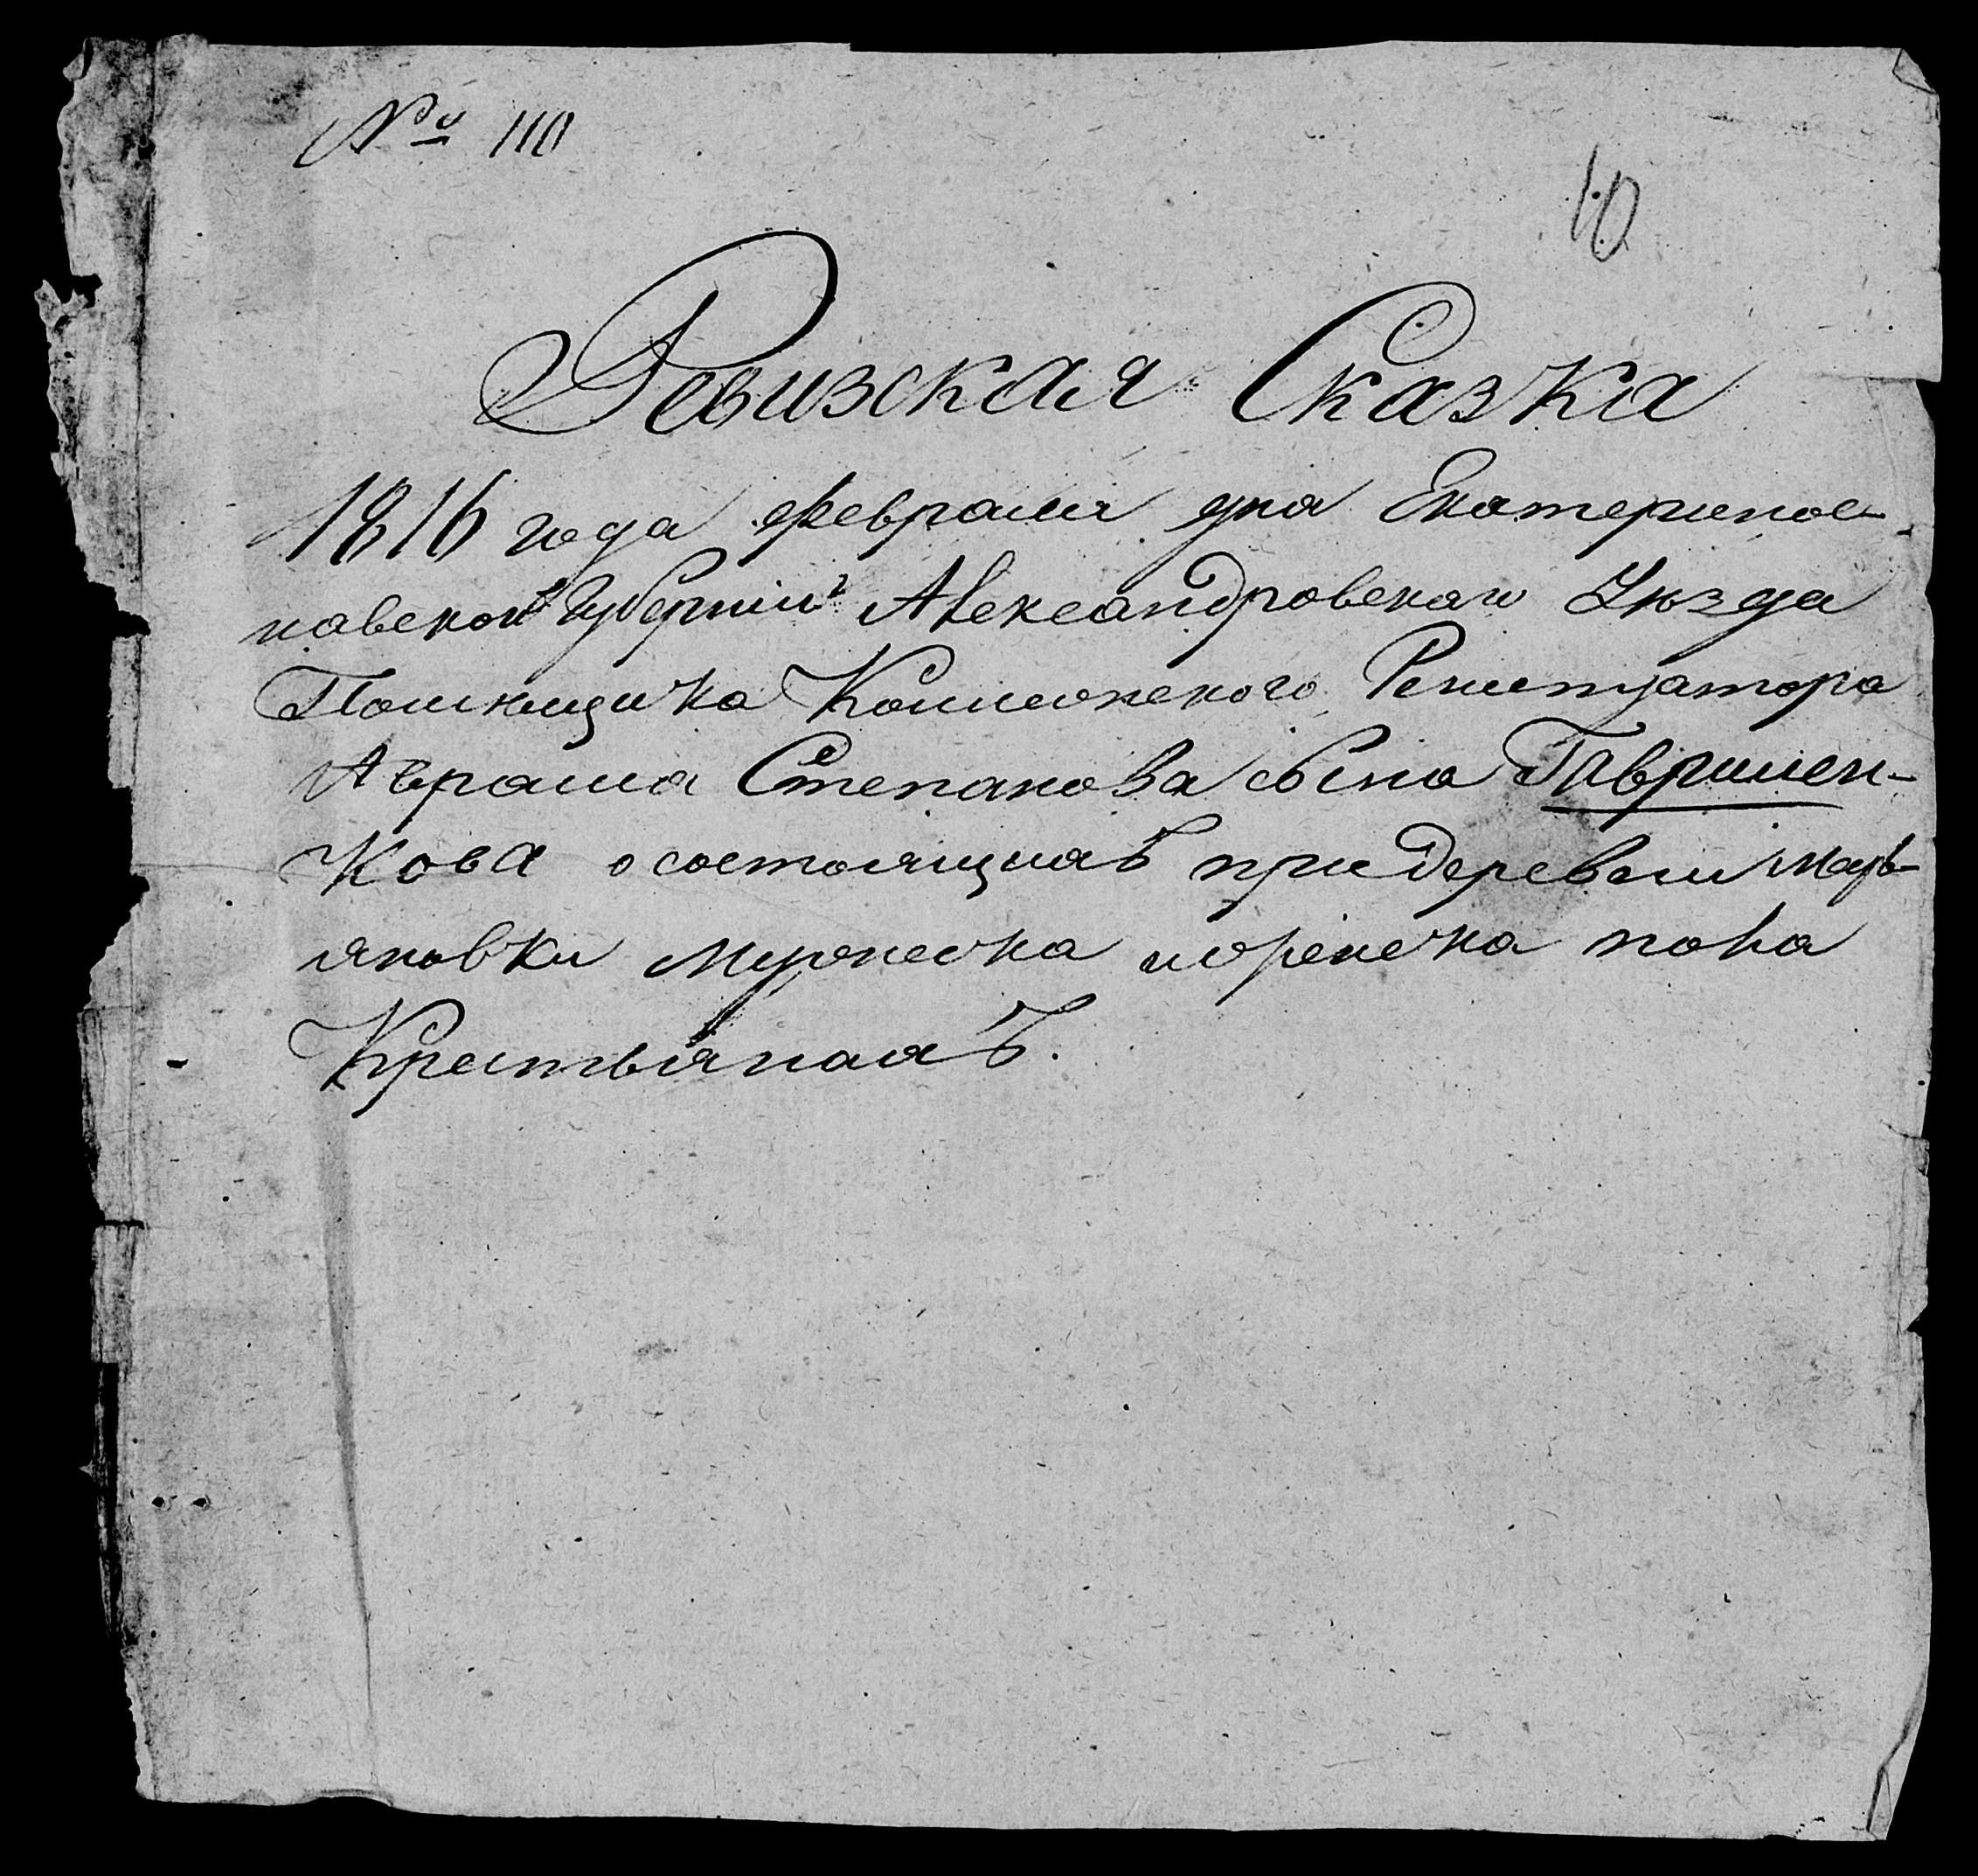 № 110
10
Ревизская Сказка
1816 года февраля дня Екатеринос-
лавской Губернии Александровскаго Уѣзда
Помѣщика Коллежского Регистратора
Аврама Степанова сына Гаврилен-
кова о состоящихъ при деревни Марь-
яновки мужеска и женска пола
Крестьянахъ.